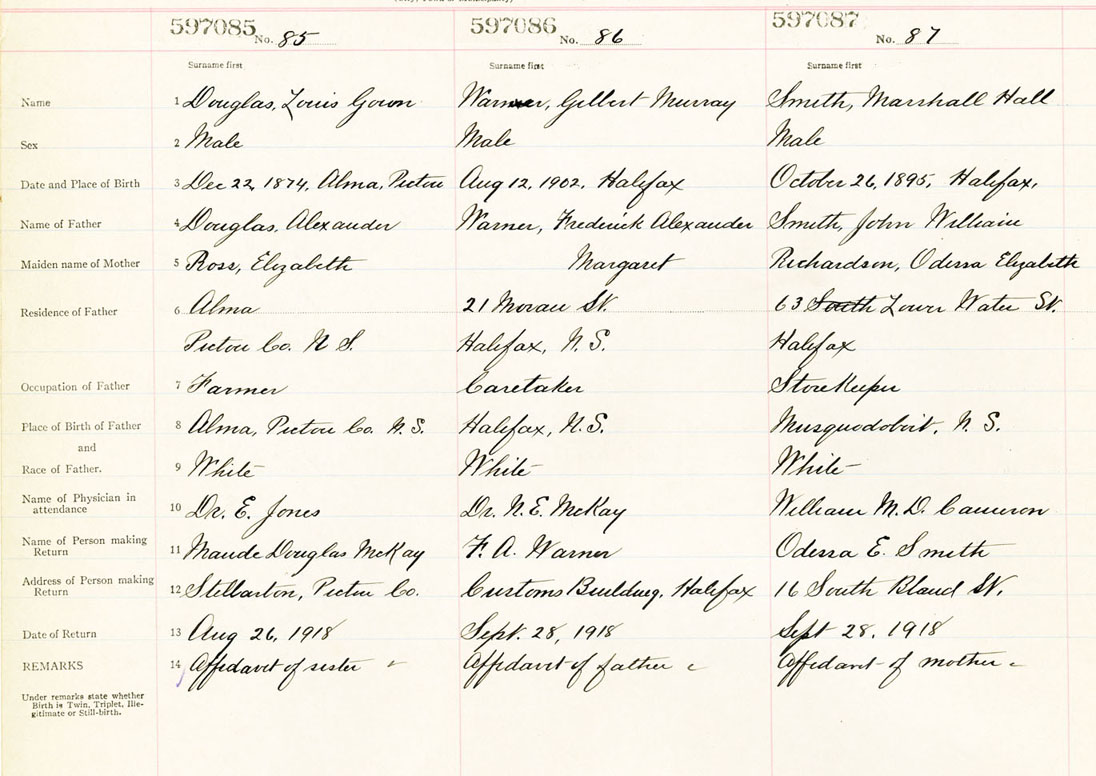 597085 No. 85 597086 No. 86 597087 No. 87
Surname first Surname first Surname first
Name 1 Douglas, Louis Gowan Warner, Gilbert Murray Smith, Marshall Hall
Sex 2 Male Male Male
Date and Place of Birth 3 Dec 22, 1874, Alma, Pictou Aug 12, 1902, Halifax October 26, 1895, Halifax,
Name of Father 4 Douglas, Alexander Warner, Frederick Alexander Smith, John William
Maiden name of Mother 5 Ross, Elizabeth Margaret Richardson, Odessa Elizabeth
Residence of Father 6 Alma 21 Moran St. 63 South Lower Water St.
Pictou Co. N S. Halifax, N. S. Halifax
Occupation of Father 7 Farmer Caretaker StoreKeeper
Place of Birth of Father 8 Alma, Pictou Co. N. S. Halifax, N.S. Musquodoboit, N. S.
and
Race of Father. 9 White White White
Name of Physician in
attendance 10 Dr. E. Jones Dr. N. E. McKay William M. D. Cameron
Name of Person making
Return 11 Maude Douglas McKay F. A. Warner Odessa E. Smith
Address of Person making
Return 12 Stellarton, Pictou Co. Customs Building, Halifax 16 South Bland St.
Date of Return 13 Aug 26, 1918 Sept. 28, 1918 Sept 28, 1918
REMARKS 14 Affidavit of sister Affidavit of father Affidavit of mother
Under remarks state whether
Birth is Twin, Triplet, Ille-
gitimate or Still-birth.